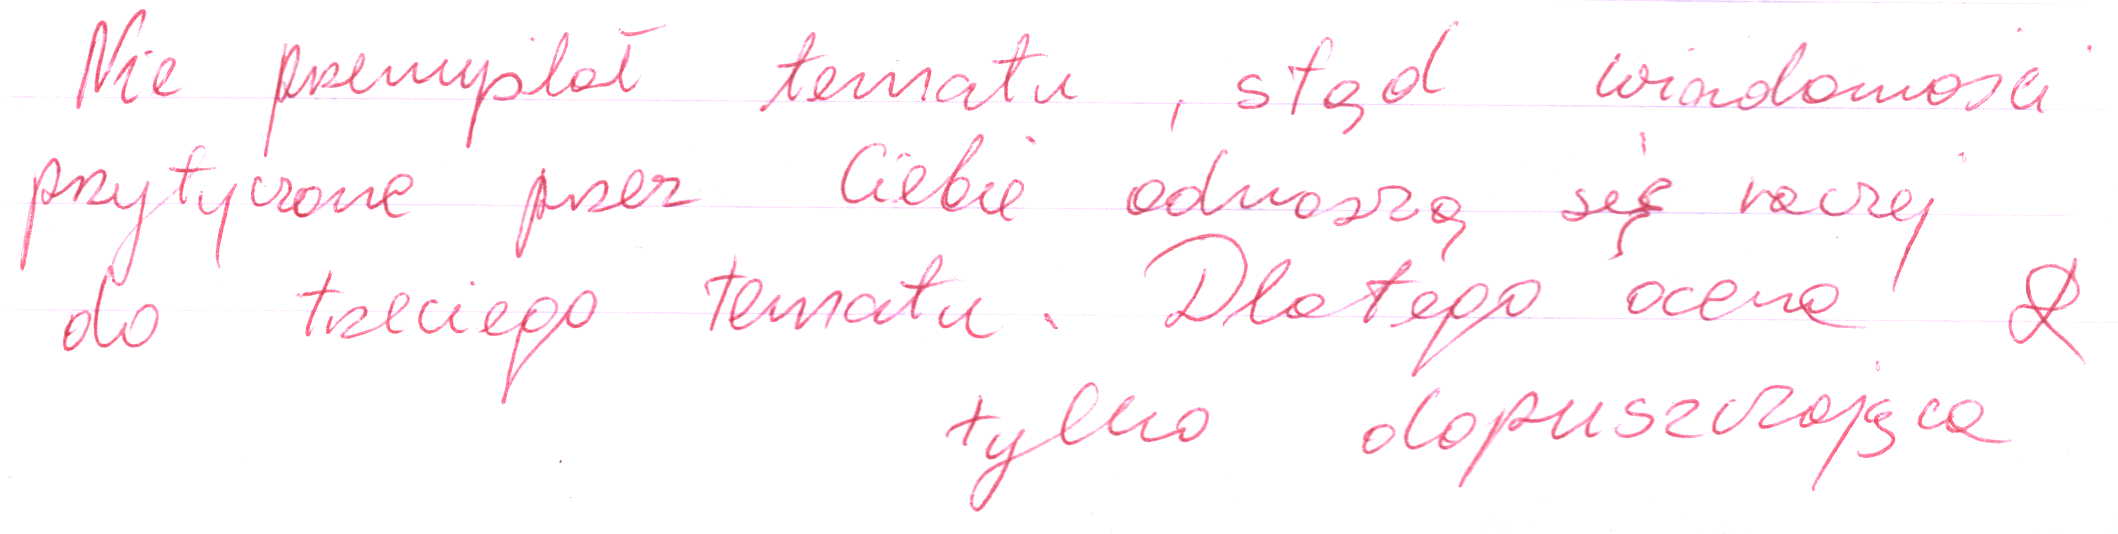 Nie przemyślał tematu, stąd wiadomości
przytyczone przez Ciebie odnoszą się raczej
do trzeciego tematu. Dlatego ocena
tylko dopuszczająca